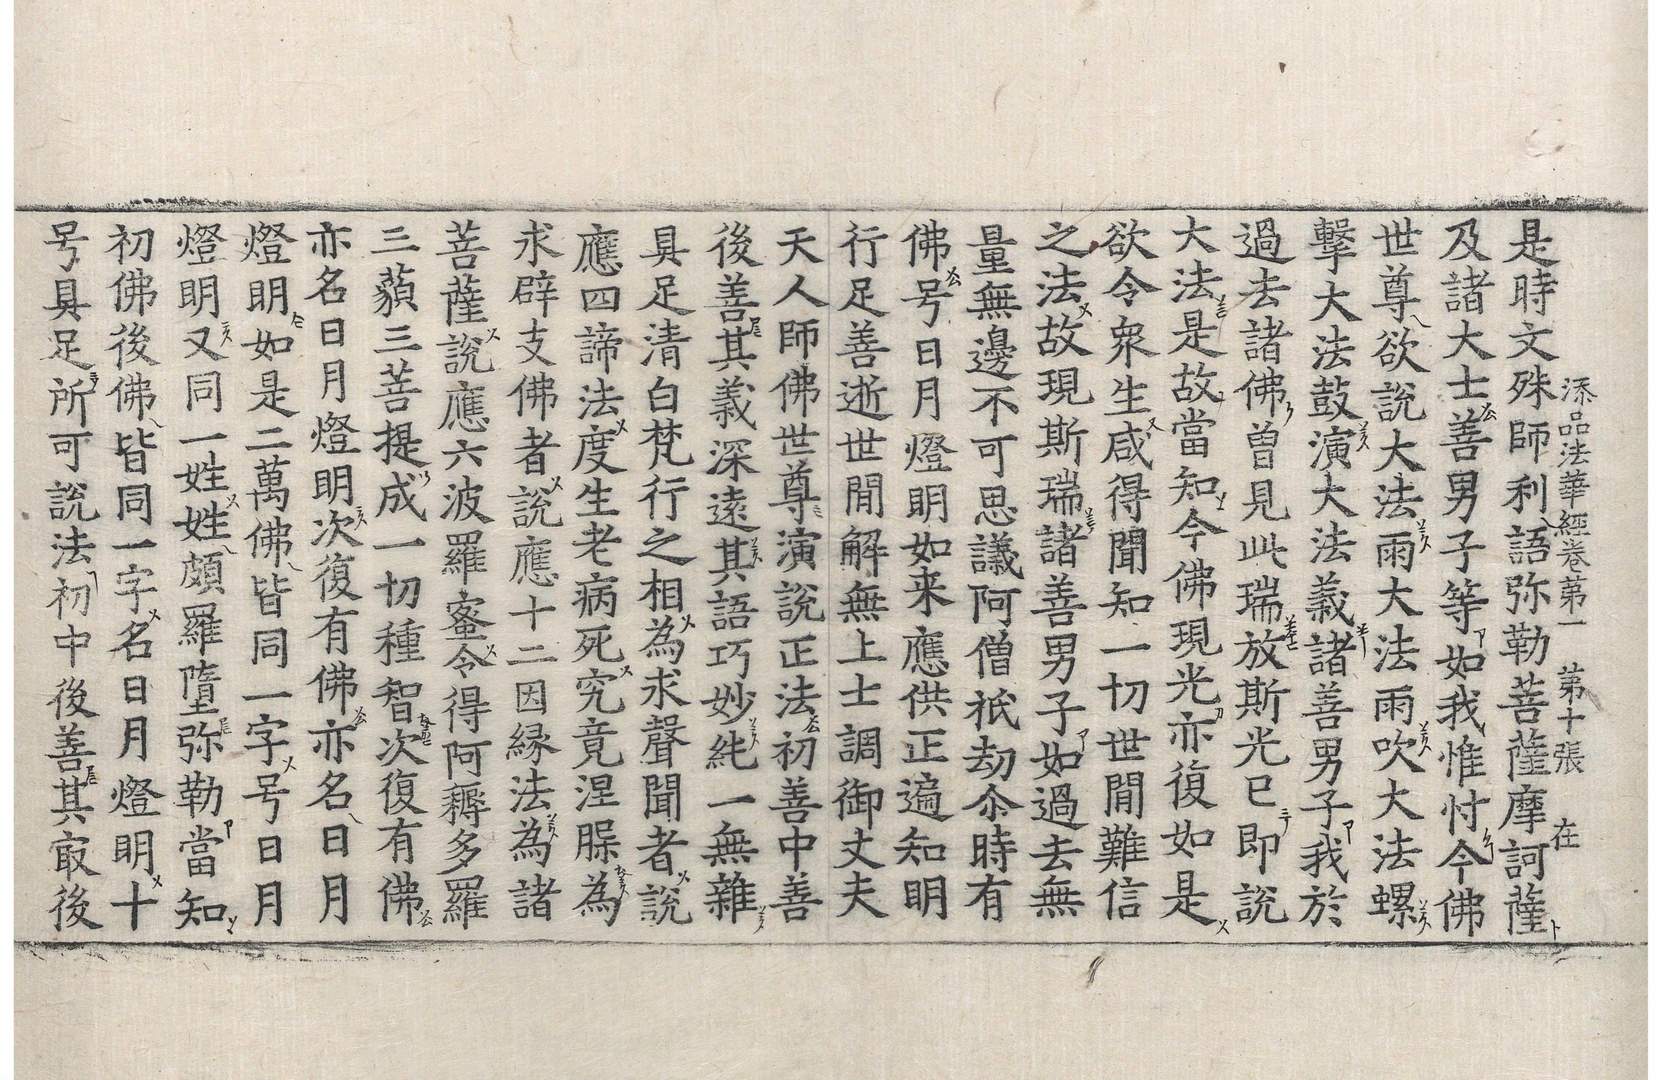 添品法華經卷苐一　苐十張　在
是時文殊師利語弥勒菩薩摩訶薩
及諸大士善男子等如我惟忖今佛
世尊欲說大法雨大法雨吹大法螺
擊大法鼓演大法義諸善男子我於
過去諸佛曾見此瑞放斯光已即說
大法是故當知今佛現光亦復如是
欲令衆生咸得聞知一切世間難信
之法故現斯瑞諸善男子如過去無
量無邊不可思議阿僧祇劫尒時有
佛号日月燈明如来應供正遍知明
行足善逝世間解無上士調御丈夫
天人師佛世尊演說正法初善中善
後善其義深遠其語巧妙純一無雜
具足清白梵行之相為求聲聞者說
應四諦法度生老病死究竟涅槃為
求辟支佛者說應十二因緣法為諸
菩薩說應六波羅蜜令得阿耨多羅
三藐三菩提成一切種智次復有佛
亦名日月燈明次復有佛亦名日月
燈明如是二萬佛皆同一字号日月
燈明又同一姓姓頗羅墮弥勒當知
初佛後佛皆同一字名日月燈明十
号具足所可說法初中後善其冣後